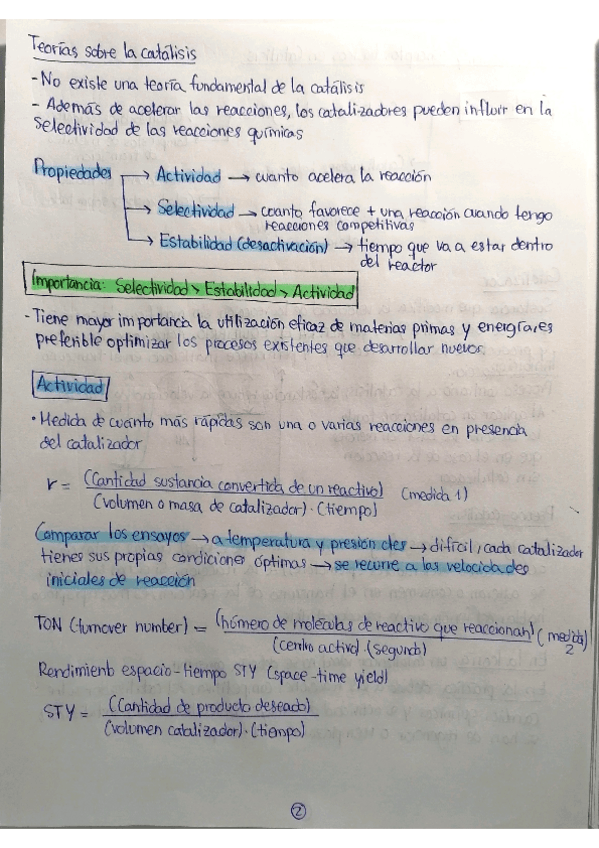 Teorías sobre la catálisis
- No existe una teoría fundamental de la catálisis
- Además de acelerar las reacciones, los catalizadores pueden influir en la
selectividad de las reacciones químicas
Propiedades → Actividad → cuanto acelera la reacción
→ Selectividad → cuanto favorece + una reacción cuando tengo
reacciones competitivas
→ Estabilidad (desactivación) → tiempo que va a estar dentro
del reactor
Importancia: Selectividad > Estabilidad > Actividad
- Tiene mayor importancia la utilización eficaz de materias primas y energía, es
preferible optimizar los procesos existentes que desarrollar nuevos.
Actividad
• Medida de cuánto más rápidas son una o varias reacciones en presencia
del catalizador
r = (Cantidad sustancia convertida de un reactivo) / (volumen o masa de catalizador) · (tiempo) (medida 1)
Comparar los ensayos → a temperatura y presión ctes → difícil, cada catalizador
tienes sus propias condiciones óptimas → se recurre a las velocidades
iniciales de reacción
TON (turnover number) = (número de moléculas de reactivo que reaccionan) / (centro activo) (segundo) (medida 2)
Rendimiento espacio-tiempo STY (space-time yield)
STY = (Cantidad de producto deseado) / (volumen catalizador) · (tiempo)
2